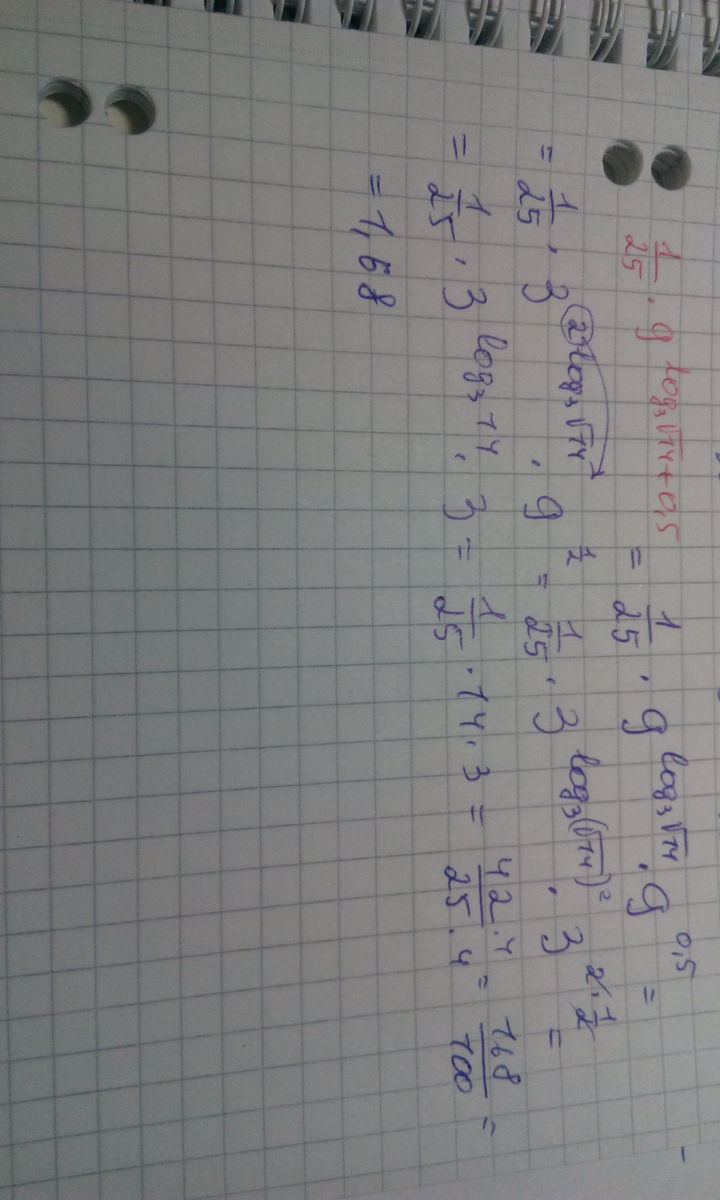 1/25 · 9^(log₃√14+0,5) = 1/25 · 9^(log₃√14) · 9^(0,5) =
= 1/25 · 3^(2·log₃√14) · 9^(1/2) = 1/25 · 3^(log₃(√14)²) · 3^(2·1/2) =
= 1/25 · 3^(log₃14) · 3 = 1/25 · 14 · 3 = 42·4/25·4 = 168/100 =
= 1,68